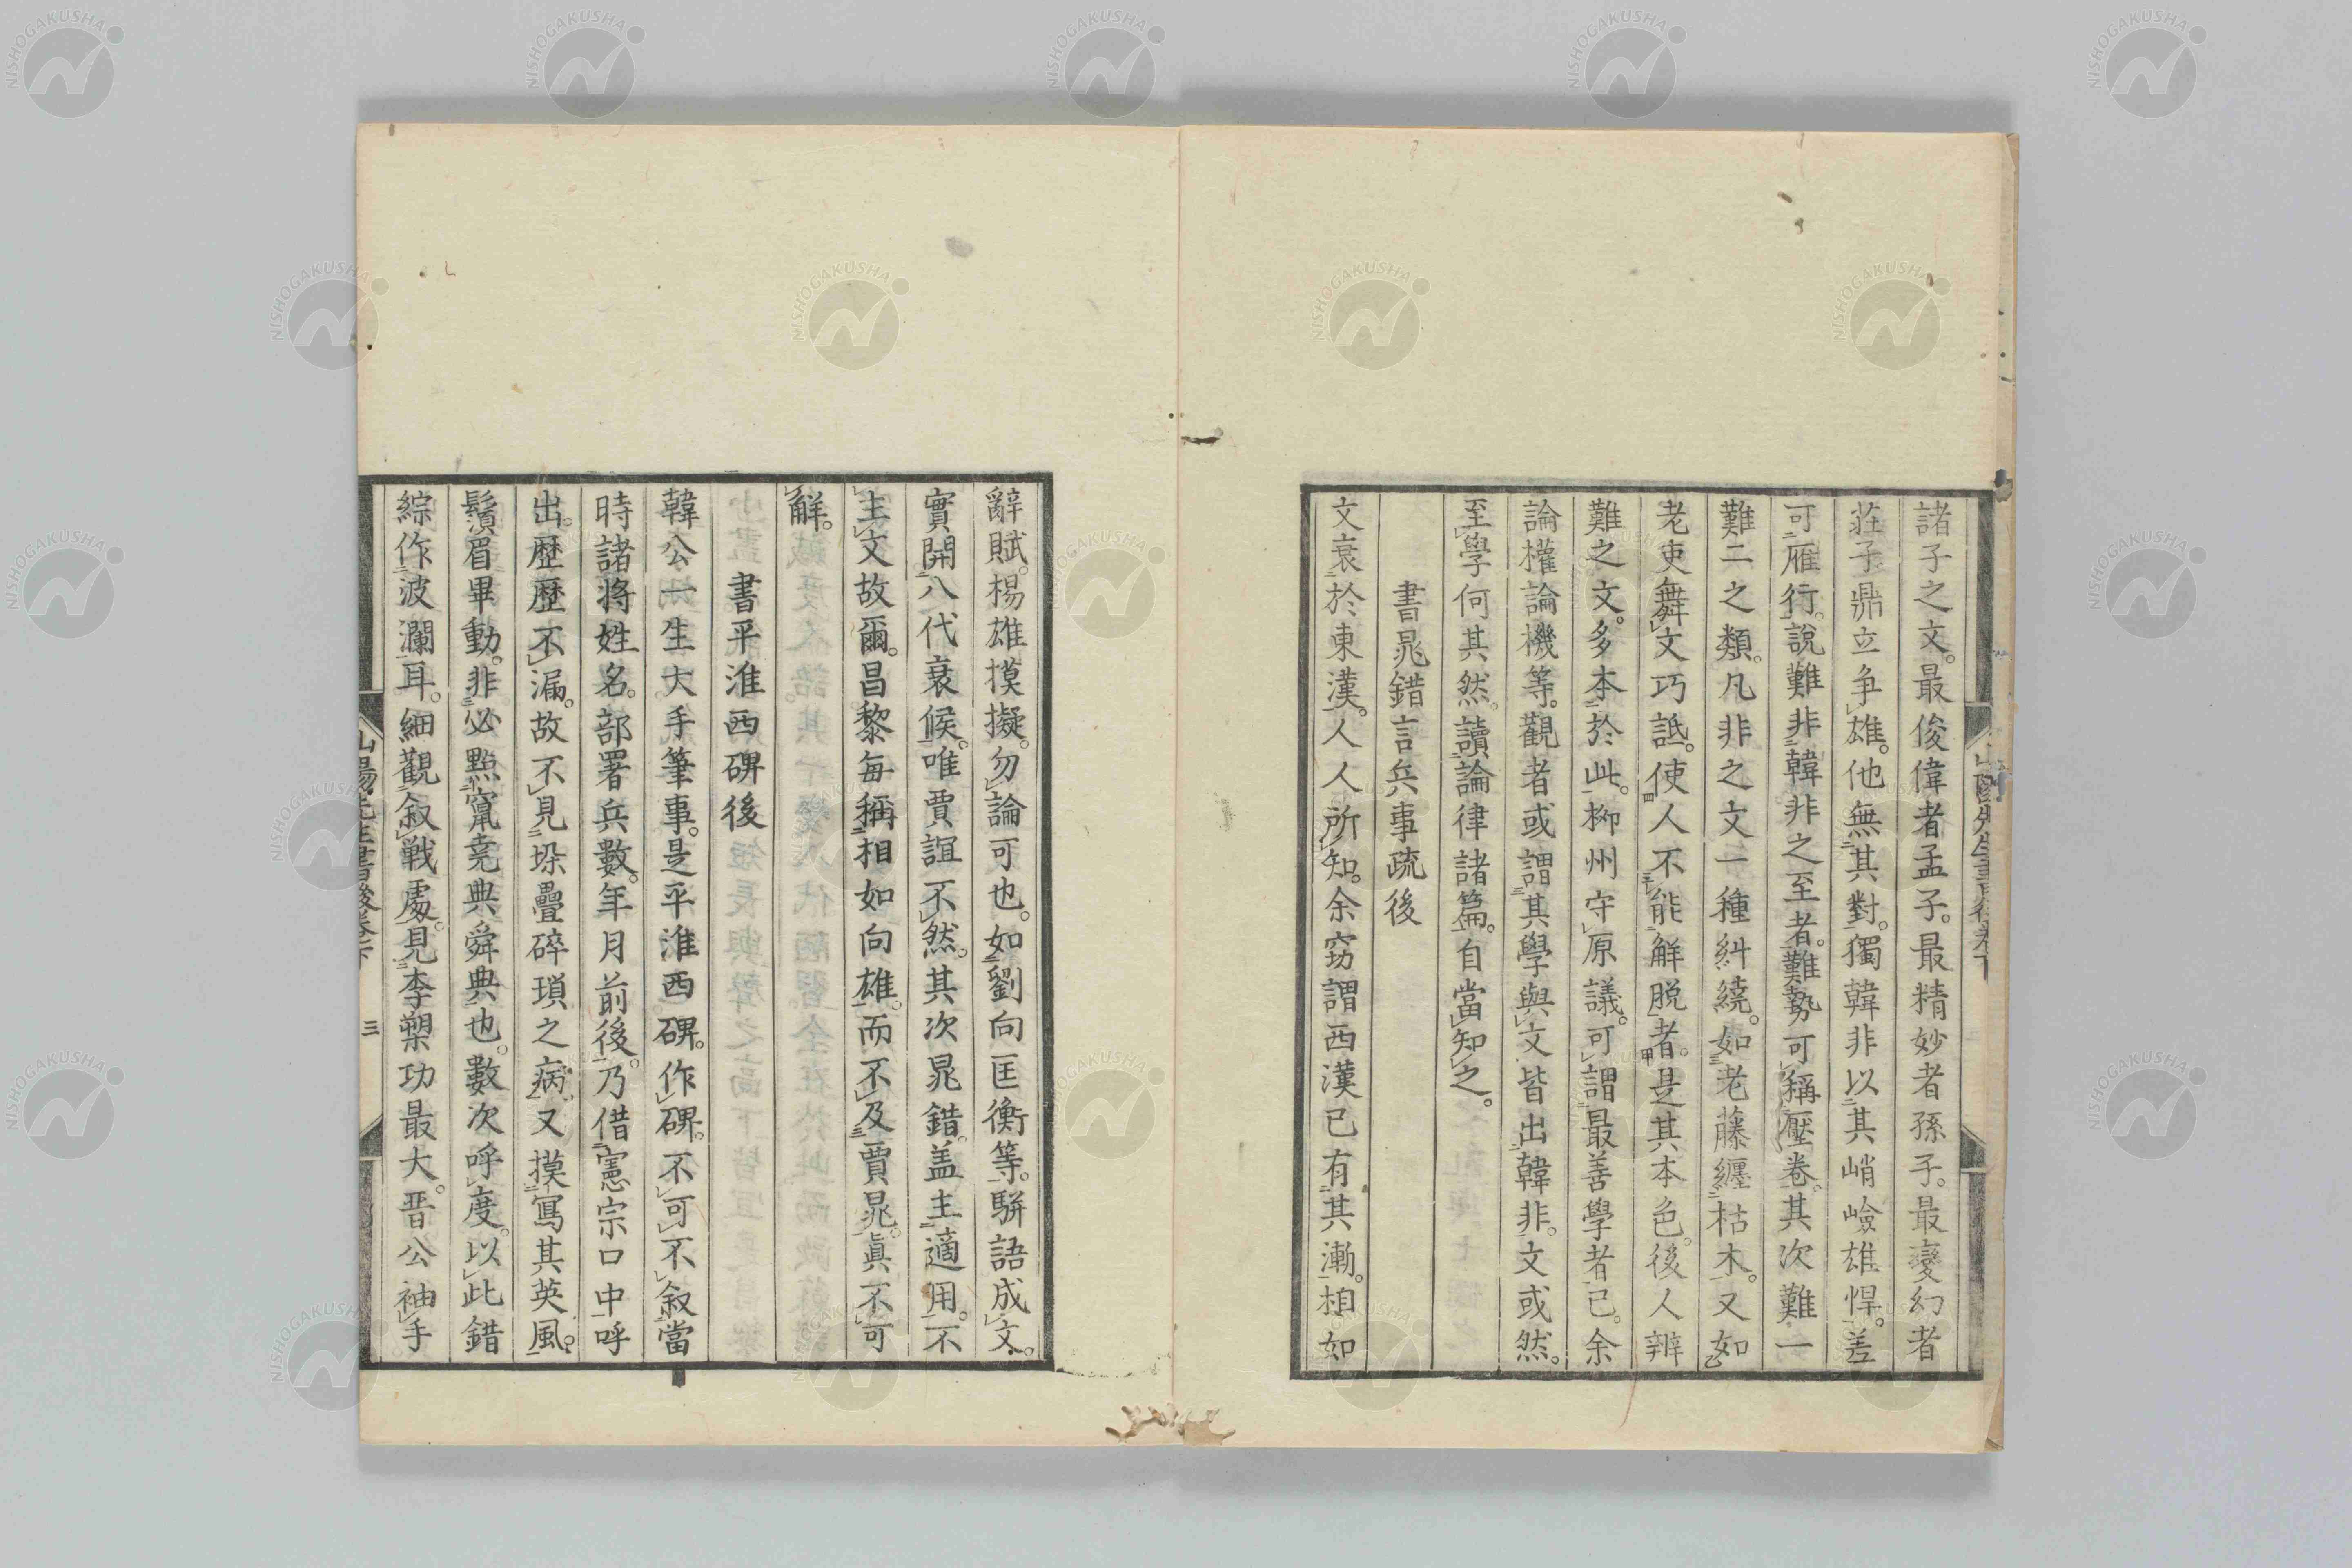 諸子之文。最俊偉者孟子。最精妙者孫子。最變幻者
莊子鼎立争雄。他無其對。獨韓非以其峭嶮雄悍。差
可雁行。說難非韓非之至者。難勢可稱壓卷。其次難一
難二之類。凡非之文一種糾繞。如老藤纏枯木。又如
老吏舞文巧詆。使人不能解脱者。是其本色。後人辨
難之文。多本於此。柳州守原議。可謂最善學者已。余
論權論機等。觀者或謂其學與文皆出韓非。文或然。
至學何其然。讀論律諸篇。自當知之。
書鼂錯言兵事疏後
文衰於東漢。人人所知。余窃謂西漢已有其漸。相如
辭賦。楊雄摸擬。勿論可也。如劉向匡衡等。駢語成文。
實開八代衰候。唯賈誼不然。其次鼂錯。盖主適用。不
主文故爾。昌黎每稱相如向雄。而不及賈鼂。眞不可
解。
書平淮西碑後
韓公一生大手筆事。是平淮西碑。作碑。不可不叙當
時諸将姓名。部署兵數。年月前後。乃借憲宗口中呼
出。歷歷不漏。故不見垛疊碎瑣之病。又摸寫其英風。
鬚眉畢動。非必點竄堯典舜典也。數次呼度。以此錯
綜作波瀾耳。細觀叙戰處。見李愬功最大。晋公袖手
山陽先生書後卷下
三
NISHOGAKUSHA